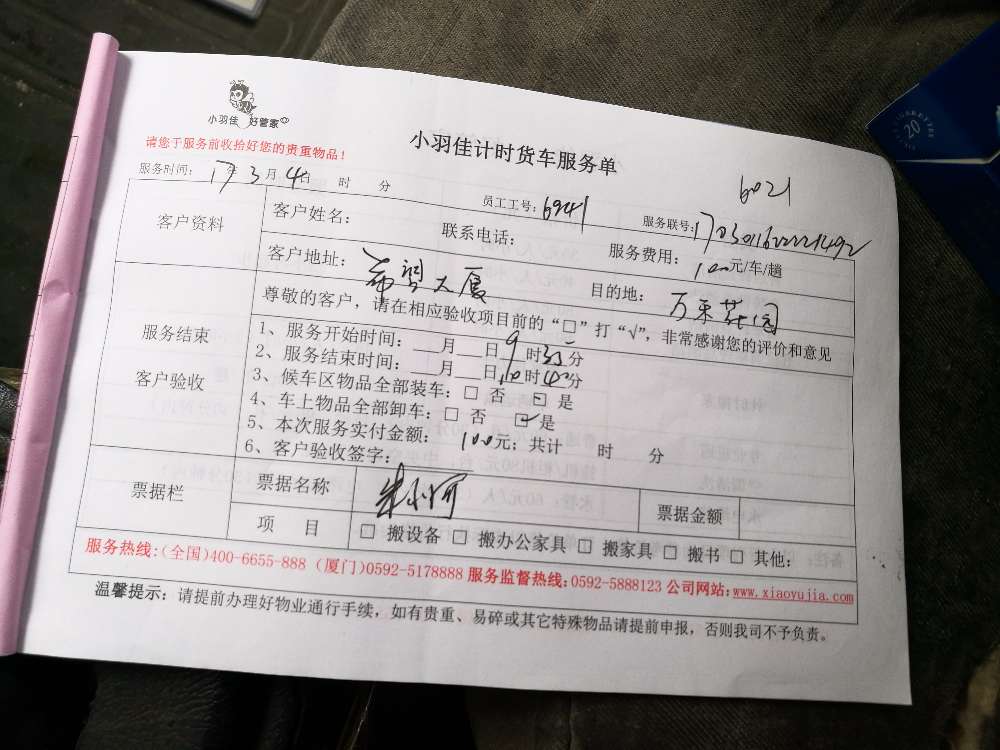 小羽佳 好管家
小羽佳计时货车服务单
请您于服务前收拾好您的贵重物品！
6021
服务时间： 17年3月4日 时 分
员工工号：6941
服务联号：
客户资料
客户姓名： 联系电话： 服务费用：100元/车/趟
客户地址：希望大厦 目的地：
服务结束
客户验收
尊敬的客户，请在相应验收项目前的“□”打“√”，非常感谢您的评价和意见
1、服务开始时间：__月__日9时35分
2、服务结束时间：__月__日10时40分
3、候车区物品全部装车：□ 否 □ 是
4、车上物品全部卸车：□ 否 ☑ 是
5、本次服务实付金额： 100元；共计 时 分
6、客户验收签字：
票据栏
票据名称
票据金额
项 目
□ 搬设备 □ 搬办公家具 □ 搬家具 □ 搬书 □ 其他：
服务热线：（全国）400-6655-888（厦门）0592-5178888 服务监督热线：0592-5888123 公司网站：www.xiaoyujia.com
温馨提示：请提前办理好物业通行手续，如有贵重、易碎或其它特殊物品请提前申报，否则我司不予负责。
20